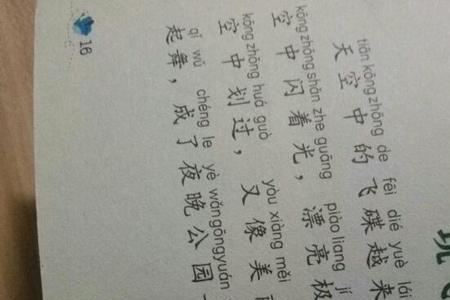 tiān kōng zhōng de fēi dié yuè lái
天空中的飞碟越来
kōng zhōng shǎn zhe guāng piào liang jí
空中闪着光，漂亮极
kōng zhōng huá guò yòu xiàng měi
空中划过，又像美
qǐ wǔ chéng le yè wǎn gōng yuán
起舞，成了夜晚公园
16